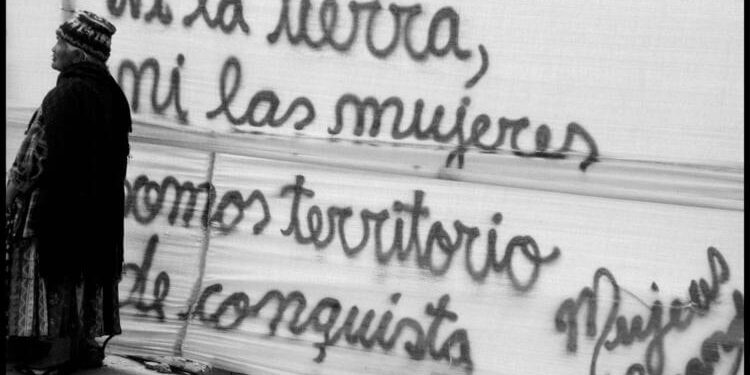 ni la tierra,
ni las mujeres
somos territorio
de conquista
Mujeres